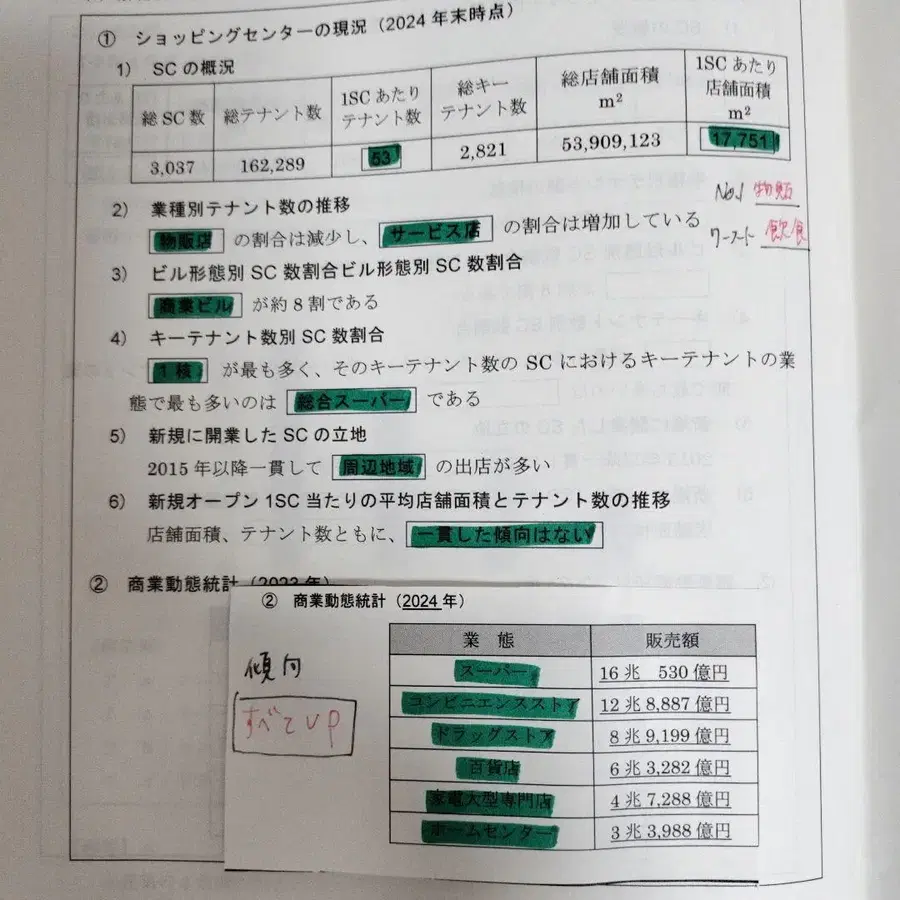 ① ショッピングセンターの現況（2024 年末時点）
1） SC の概況
総 SC 数 総テナント数 1SC あたりテナント数 総キーテナント数 総店舗面積 m² 1SC あたり店舗面積 m²
3,037 162,289 53 2,821 53,909,123 17,751
No.1 物販
2） 業種別テナント数の推移
物販店 の割合は減少し、 サービス店 の割合は増加している
ワースト 飲食
3） ビル形態別 SC 数割合ビル形態別 SC 数割合
商業ビル が約 8 割である
4） キーテナント数別 SC 数割合
1 核 が最も多く、そのキーテナント数の SC におけるキーテナントの業
態で最も多いのは 総合スーパー である
5） 新規に開業した SC の立地
2015 年以降一貫して 周辺地域 の出店が多い
6） 新規オープン 1SC 当たりの平均店舗面積とテナント数の推移
店舗面積、テナント数ともに、 一貫した傾向はない
② 商業動態統計（2023 年）
② 商業動態統計（2024 年）
業 態 販売額
傾向
スーパー 16 兆 530 億円
コンビニエンスストア 12 兆 8,887 億円
すべてUP
ドラッグストア 8 兆 9,199 億円
百貨店 6 兆 3,282 億円
家電大型専門店 4 兆 7,288 億円
ホームセンター 3 兆 3,988 億円